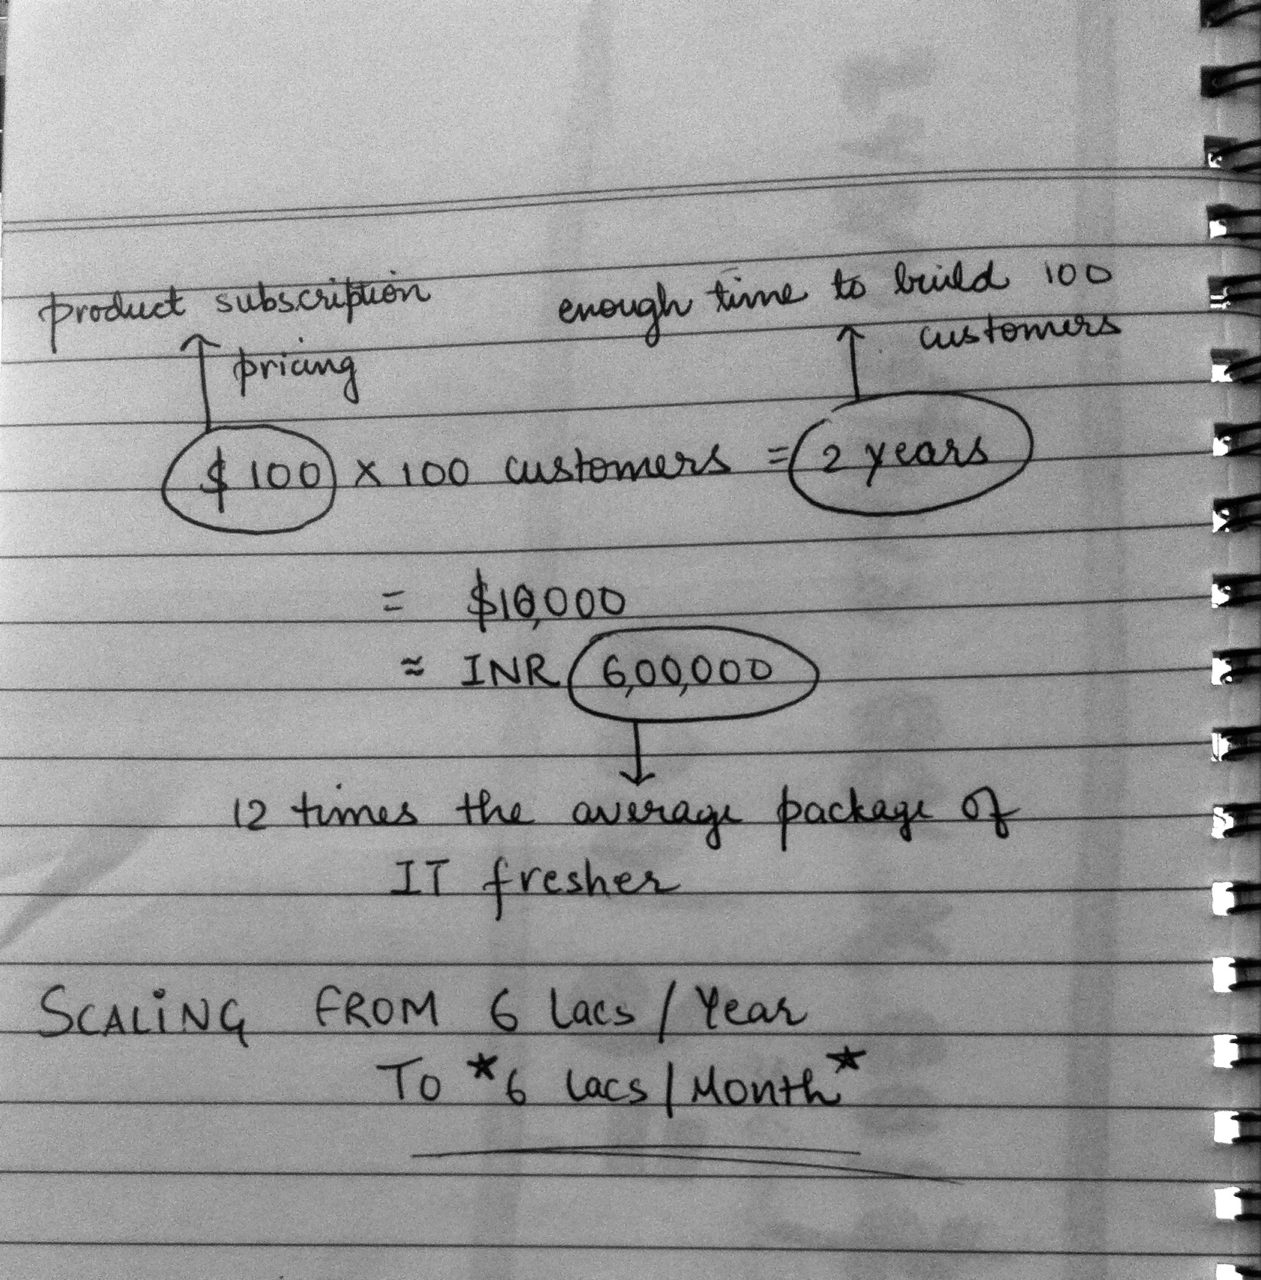 product subscription
pricing
enough time to build 100
customers
$100 × 100 customers = 2 years
= $10,000
≈ INR 6,00,000
12 times the average package of
IT fresher
SCALING FROM 6 lacs / Year
To *6 lacs / Month*